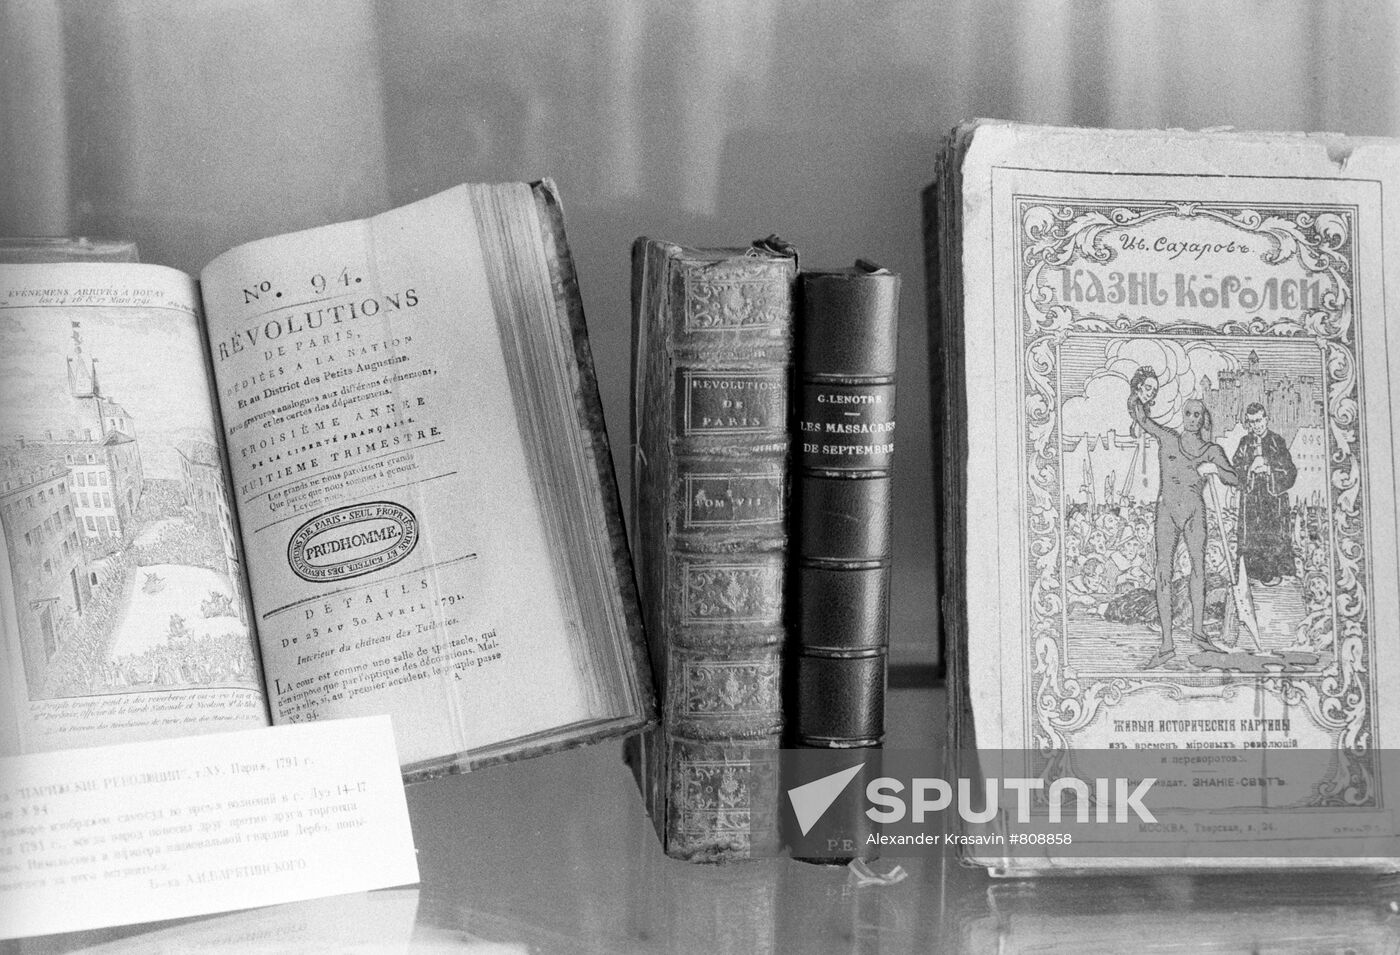 EVÉNEMENS ARRIVÉS A DOUAY
les 14, 16 & 17 Mars 1791.
No. 94.
RÉVOLUTIONS
DE PARIS,
DÉDIÉES A LA NATION
Et au District des Petits Augustins.
Avec gravures analogues aux différens événemens,
et les cartes des départemens.
TROISIÈME ANNÉE
DE LA LIBERTÉ FRANÇAISE.
HUITIÈME TRIMESTRE.
Les grands ne nous paroissent grands
Que parce que nous sommes à genoux.
Levons nous
RÉVOLUTIONS DE PARIS. SEUL PROPRIÉTAIRE ET EDITEUR DES
PRUDHOMME.
DÉTAILS
DU 23 AU 30 AVRIL 1791.
Intérieur du château des Tuileries.
LA cour est comme une salle de spectacle, qui
n'en impose que par l'optique des décorations. Mal-
heur à elle, si, au premier accident, le peuple passe
No. 94. A
REVOLUTIONS
DE
PARIS
TOM VII
G. LENOTRE
LES MASSACRES
DE SEPTEMBRE
P.E.
Ив. Сахаровъ.
КАЗНЬ КОРОЛЕЙ
ЖИВЫЯ ИСТОРИЧЕСКІЯ КАРТИНЫ
изъ временъ міровыхъ революцій
и переворотовъ.
Книгоиздат. ЗНАНІЕ-СВѢТЪ.
МОСКВА, Тверская, д. 24.
"ПАРИЖСКИЕ РЕВОЛЮЦИИ", т.XV. Париж, 1791 г.
№ 94
изображен самосуд во время волнений в г. Дуэ 14-17
1791 г., когда народ повесил друг против друга торговца
Никольсона и офицера национальной гвардии Дербо, попы-
за него вступиться.
Б-ка А.И.БАРЯТИНСКОГО.
SPUTNIK
Alexander Krasavin #808858